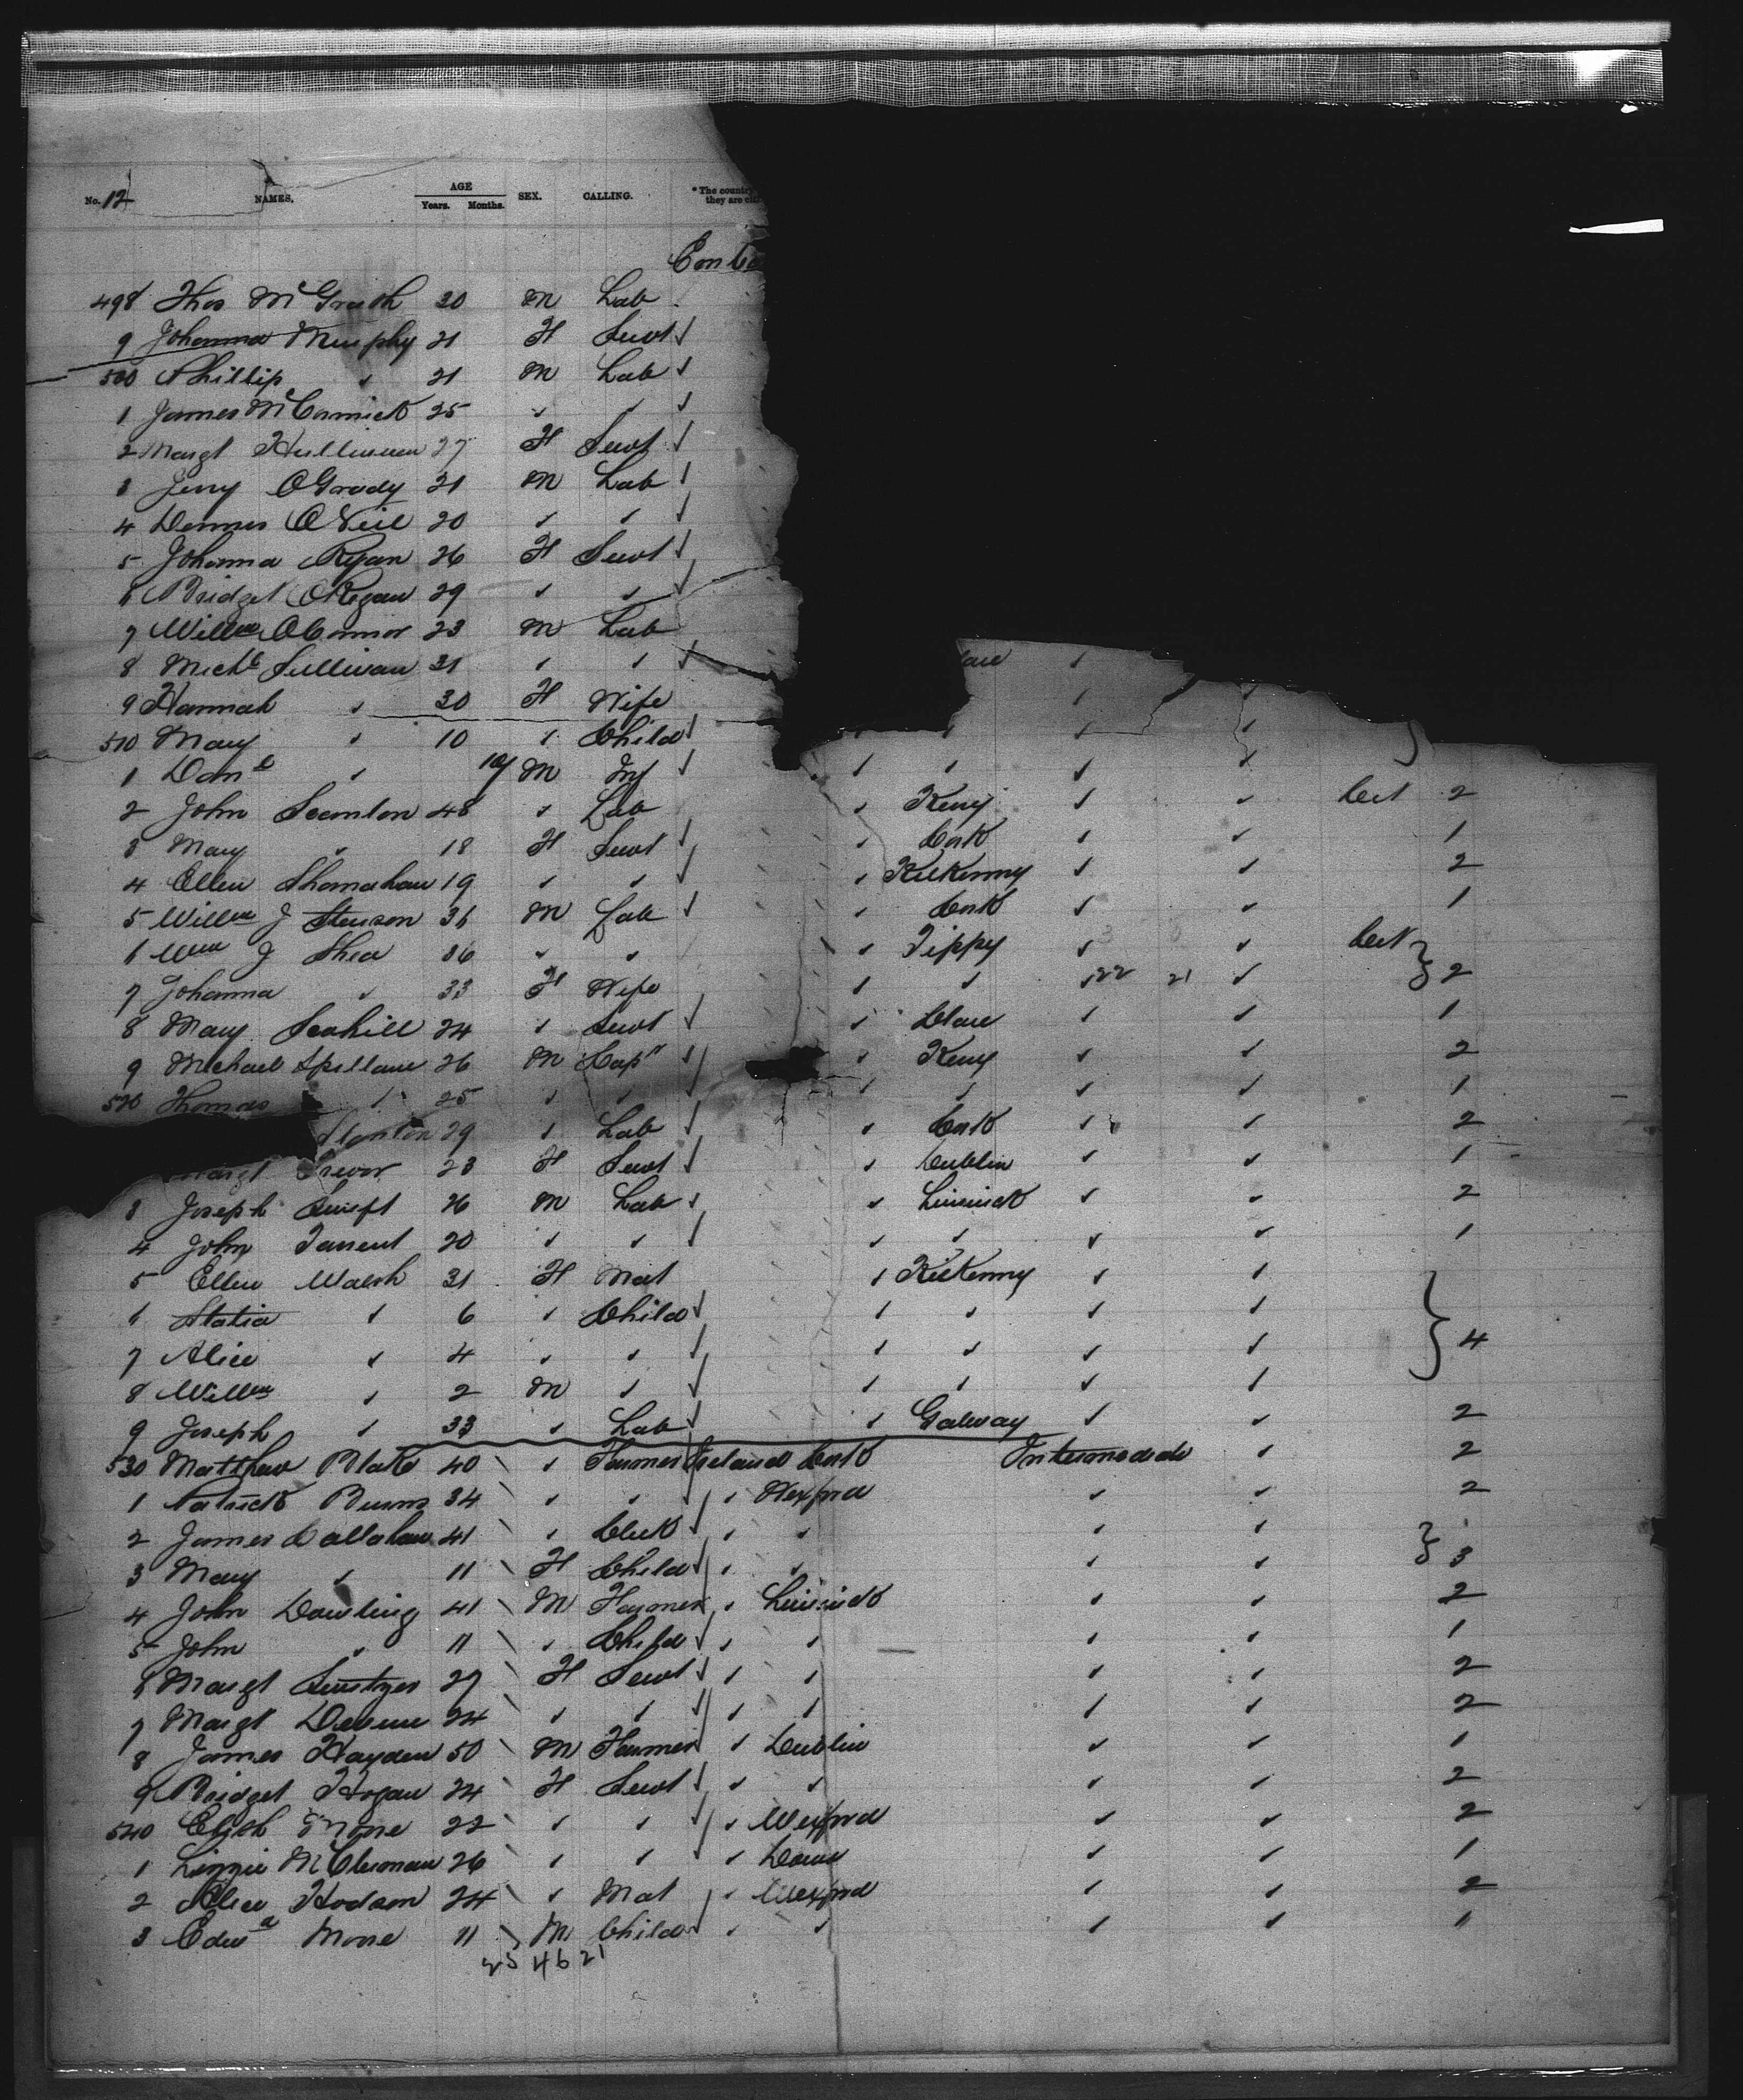 No. 12 NAMES. AGE Years. Months. SEX. CALLING. * The country they are
498 Thos McGrath 30 M Lab
9 Johanna Murphy 21 F Servt ✓
500 Phillip ✓ 21 M Lab ✓
1 James McCormick 25 ✓ ✓ ✓
2 Margt 27 F Servt ✓
3 Jerry OGrady 21 M Lab ✓
4 Dennis ONeil 20 ✓ ✓ ✓
5 Johanna Ryan 26 F Servt ✓
6 Bridget ORegan 29 ✓ ✓ ✓
7 Willm OConnor 23 M Lab
8 Michl Sullivan 31 ✓ ✓ ✓ ✓
9 Hannah ✓ 30 F Wife ✓ ✓
510 Mary ✓ 10 ✓ Child ✓ ✓ ✓ ✓
1 Danl ✓ 10/ M Inf ✓ ✓ ✓ ✓ ✓
2 John Scanlon 48 ✓ Lab ✓ Kerry ✓ ✓ 2
3 Mary ✓ 18 F Servt ✓ ✓ Cork ✓ ✓ 1
4 Ellen Shanahan 19 ✓ ✓ ✓ ✓ Kilkenny ✓ ✓ 2
5 Willm J 36 M Lab ✓ ✓ Cork ✓ ✓ 1
6 Wm J Shea 36 ✓ ✓ ✓ Tippy ✓ ✓
7 Johanna ✓ 33 F Wife ✓ ✓ ✓ 22 21 ✓ } 2
8 Mary Scahill 24 ✓ Servt ✓ ✓ Clare ✓ ✓ 1
9 Michael Spillane 26 M ✓ ✓ Kerry ✓ ✓ 2
520 Thomas ✓ 25 ✓ ✓ ✓ ✓ ✓ ✓ 1
Stanton 29 ✓ Lab ✓ ✓ Cork ✓ ✓ 2
Margt 23 F Servt ✓ ✓ Dublin ✓ ✓ 1
3 Joseph Swift 26 M Lab ✓ ✓ Limirick ✓ ✓ 2
4 John Tarrent 20 ✓ ✓ ✓ ✓ ✓ ✓ ✓ 1
5 Ellen Walsh 31 F Mat ✓ Kilkenny ✓ ✓
6 Statia ✓ 6 ✓ Child ✓ ✓ ✓ ✓ ✓
7 Alice ✓ 4 ✓ ✓ ✓ ✓ ✓ ✓ ✓ } 4
8 Willm ✓ 2 M ✓ ✓ ✓ ✓ ✓ ✓
9 Joseph ✓ 33 ✓ Lab ✓ ✓ Galway ✓ ✓ 2
530 Matthew Blake 40 ✓ Farmer Ireland Cork Intermediate ✓ 2
1 Patrick Burns 34 ✓ ✓ ✓ ✓ Wexford ✓ ✓ 2
2 James Callahan 41 ✓ Clerk ✓ ✓ ✓ ✓ ✓
3 Mary ✓ 11 F Child ✓ ✓ ✓ ✓ ✓ } 3
4 John Dowling 41 M Farmer ✓ Limirick ✓ ✓ 2
5 John ✓ 11 ✓ Child ✓ ✓ ✓ ✓ ✓ 1
6 Margt 27 F Servt ✓ ✓ ✓ ✓ ✓ 2
7 Margt Devine 24 ✓ ✓ ✓ ✓ ✓ ✓ ✓ 2
8 James Hayden 50 M Farmer ✓ Dublin ✓ ✓ 1
9 Bridget Hogan 24 F Servt ✓ ✓ ✓ ✓ ✓ 2
540 Elizth Moore 22 ✓ ✓ ✓ ✓ Wexford ✓ ✓ 2
1 Lizzie 26 ✓ ✓ ✓ Down ✓ ✓ 1
2 Alice Hodson 24 ✓ Mat ✓ Wexford ✓ ✓ 2
3 Edwd Moore 11 M Child ✓ ✓ ✓ ✓ ✓ 11
25 46 21